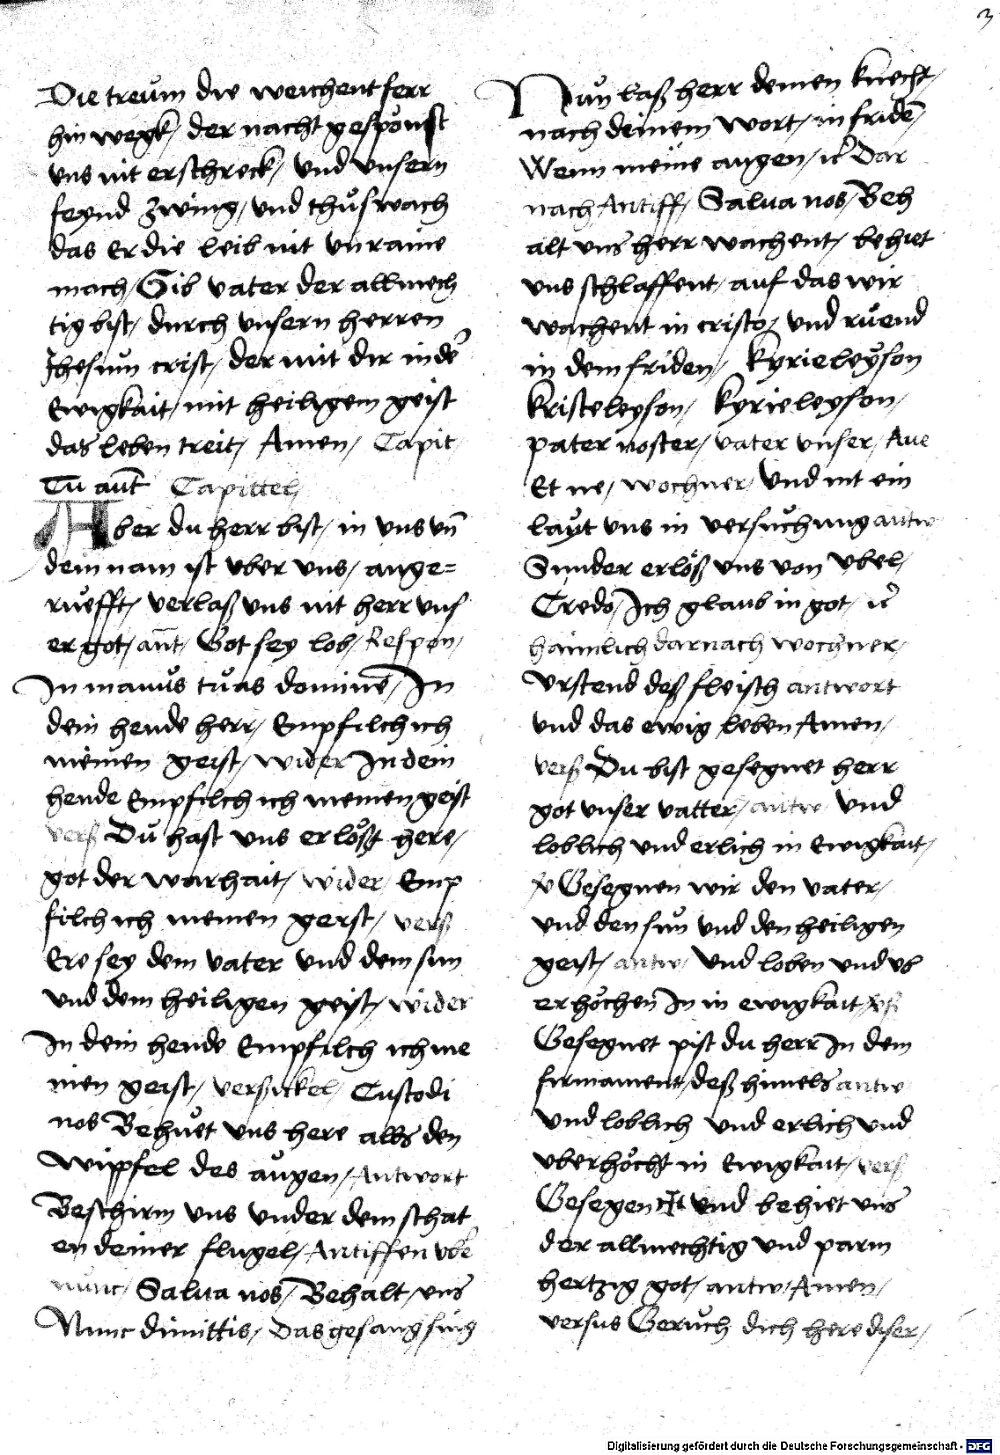 3
Die treum die weichent ferr
hin wegk / der nacht gesponst
vns nit erschreck / vnd vnsern
feynd zwing / vnd thůs wach
das Er die leib nit vnraine
mach / Gib vater der allmech
tig bist / durch vnsern herren
Jhesum crist / der mit dir in dē
Ewigkait / mit heiligem geist
das leben treit / Amen / Capit
Tu aut̄ Capittel /
Aber du herr bist / in vns vn̄
dein nam ist vber vns / ange=
růefft / verlaß vns nit herr vns
er got / ant̄ / Got sey lob / Respon /
In manus tuas dominē / In
dein hende herr / Empfilch ich
meinen geist / wider In dein
hende Empfilch ich meinen geist
verß Du hast vns erlößt here /
got der warhait / wider / Emp
filch ich meinen geist / verß
Ere sey dem vater vnd dem sun
vnd dem heiligen geist / wider
In dein hende Empfilch ich me
inen geist / versickel / Custodi
nos Behuet vns here alls den
wipfel des augen / Antwort
Beschirm vns vnder dem schat
en deiner flugel / Antiffen vbe
nunc / Salua nos / Behalt vns
Nunc dimittis / Das gesang sing
Nun laß herr deinen knecht /
nach deinem wort / in fridē /
Wenn meine augen / ꝛc Dar
nach Antiff / Salua nos / Beh
alt vns herr wachent / behiet
vns schlaffent / auf das wir
wachent in cristo / vnd ruend
in dem friden / kyrieleyson
kristeleyson / kyrieleyson /
pater noster / vater vnser / Aue
Et ne / wochner / Vnd nit ein
layt vns in versuchung antw
Sunder erlöß vns von vbel /
Credo / Ich glaub in got / ꝛc
haimlich darnach wochner /
Vrstend deß fleisch antwort
vnd das ewig leben Amen /
verß Du bist gesegnet herr
got vnser vatter / antw / vnd
loblich vnd erlich in Ewigkait /
℣ Gesegnen wir den vater /
vnd den sun vnd den heiligen
geist / antw / Vnd loben vnd vb
erhöchen In in ewigkait / ℣ß
Gesegnet pist du herr In dem
firmament / deß himels antw
Vnd loblich vnd erlich vnd
vberhöcht in Ewigkait / verß
Gesegen ✝ vnd behiet vns
der allmechtig vnd parm
hertzig got / antw / Amen /
versus Geruch dich here diser /
Digitalisierung gefördert durch die Deutsche Forschungsgemeinschaft - DFG